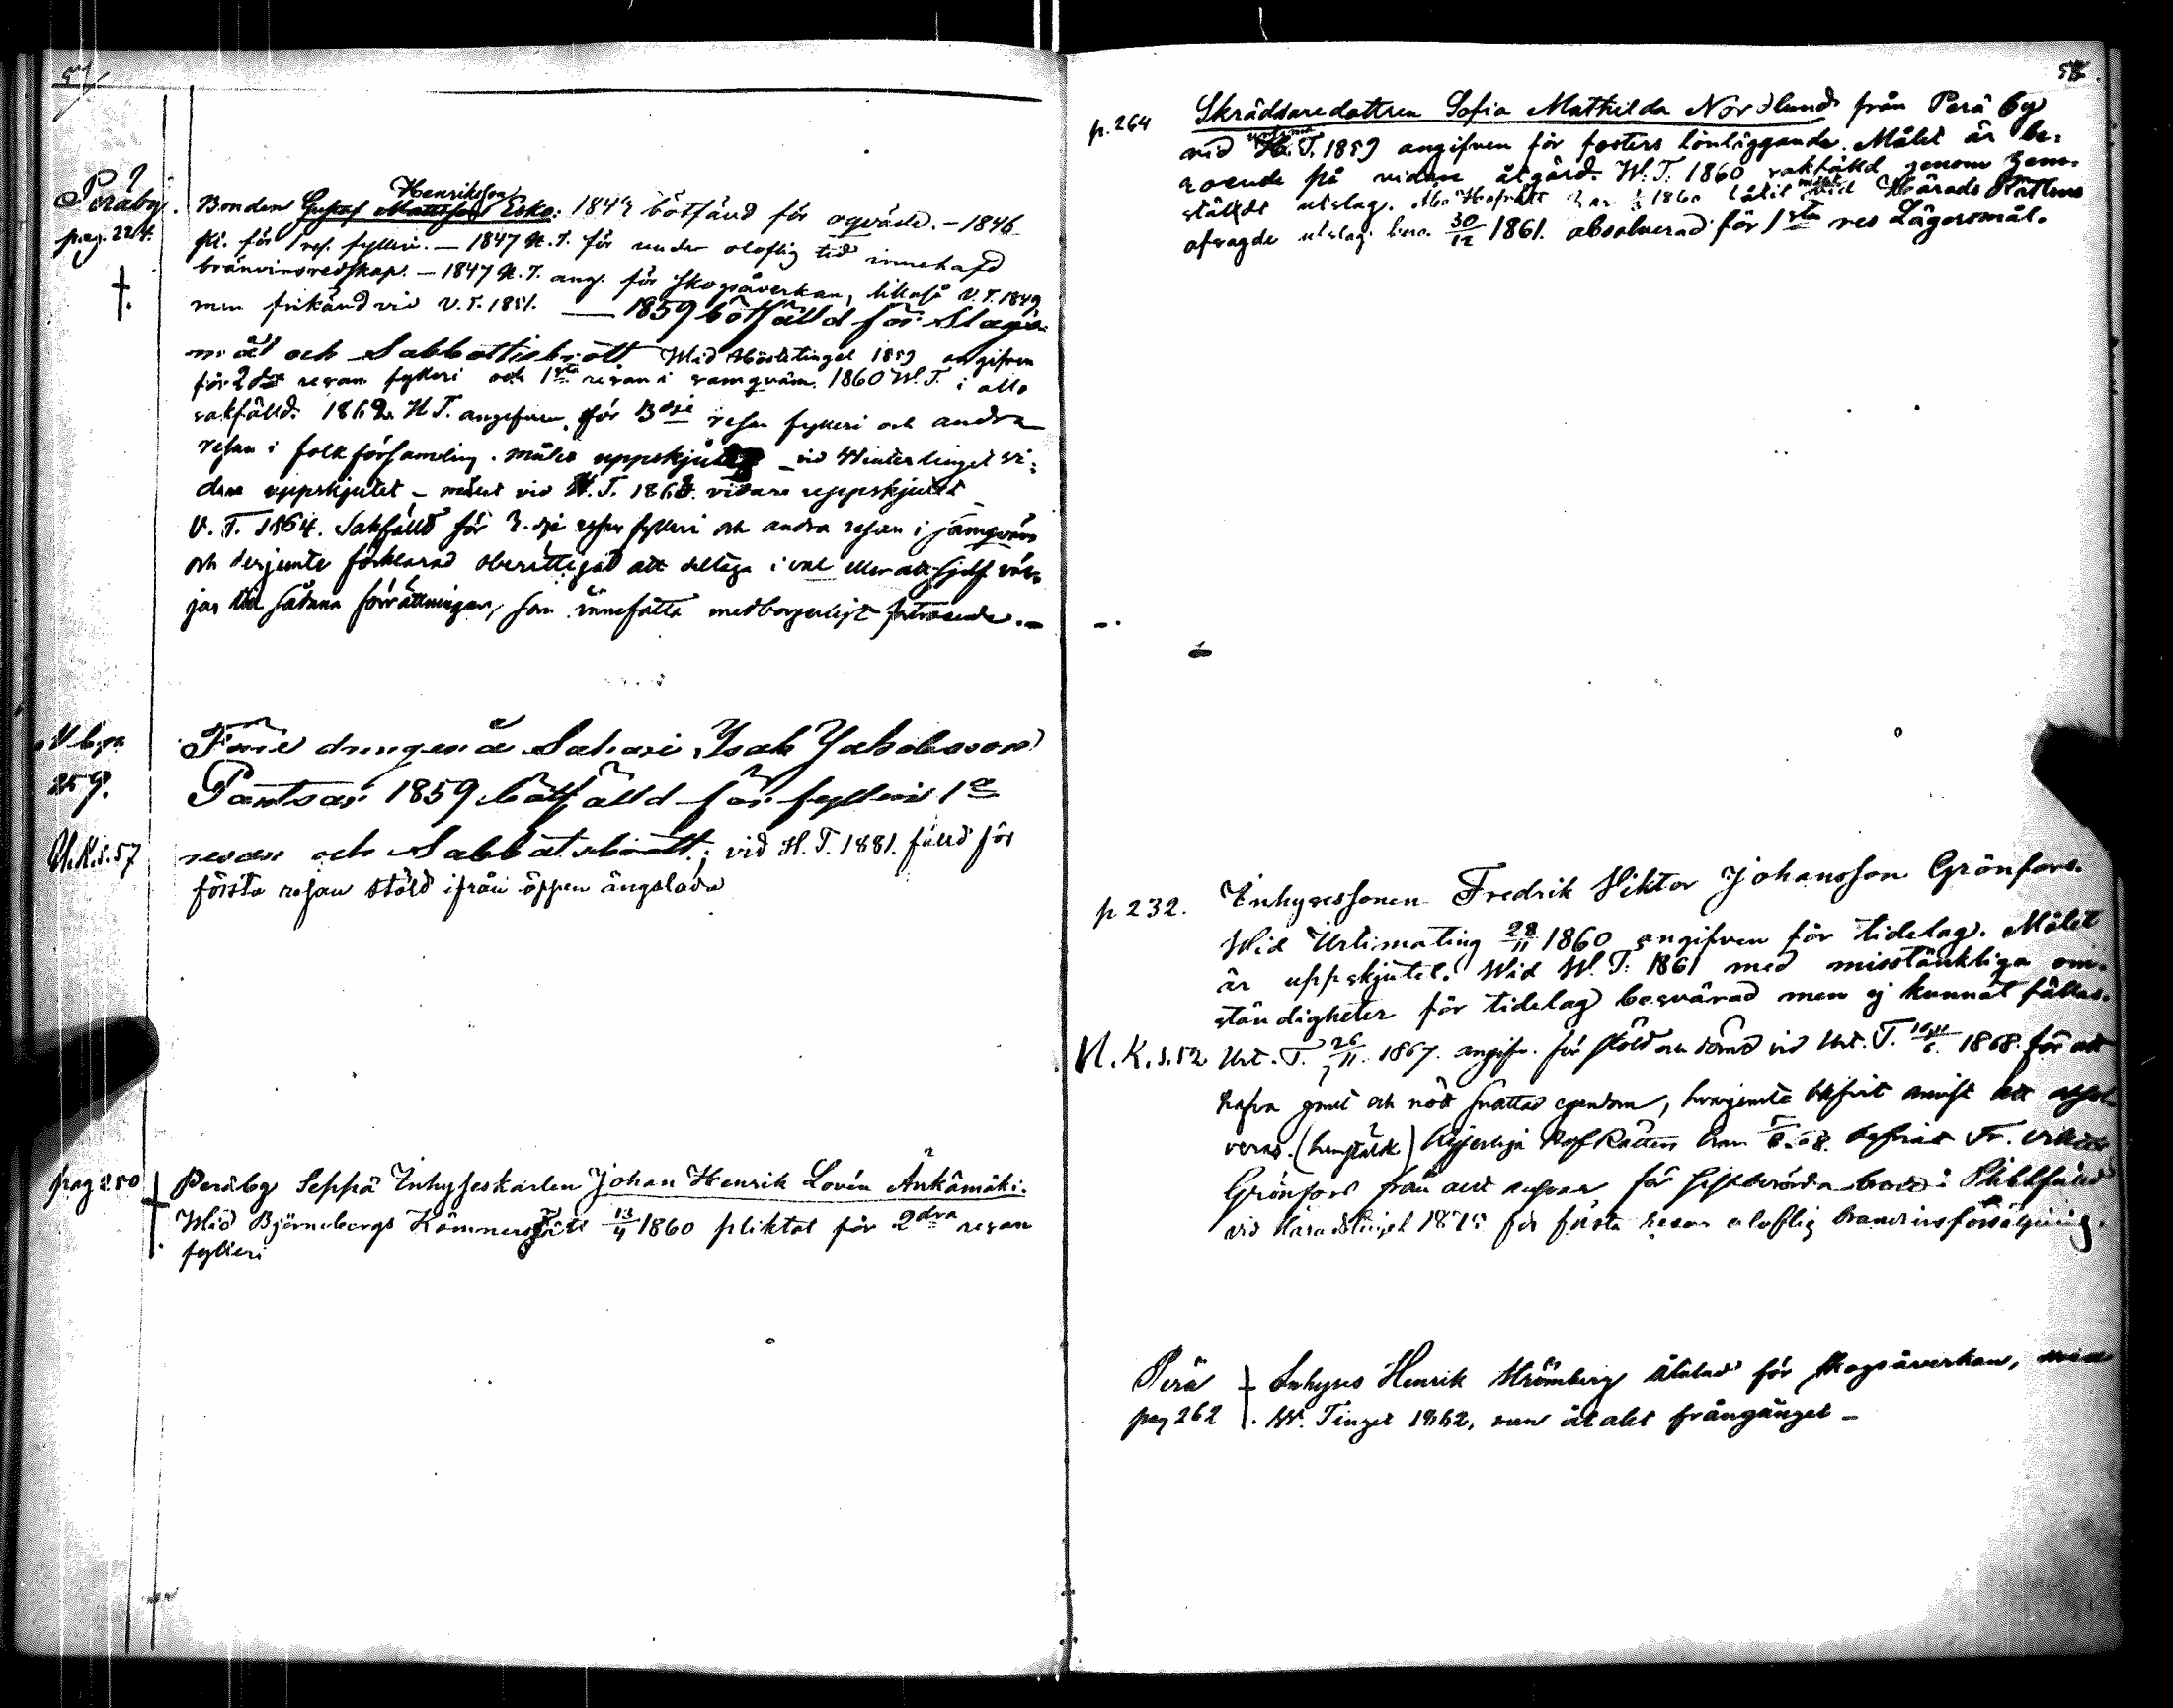 57
Peräby.
pag. 224.
Henriksson
Bonden Gustaf Mattsson Esko: 1844 bötfäld för ogväde. – 1846
pl. för 1 res. fylleri. – 1847 H. T. för under oloflig tid innehafd
bränvinsredskap. – 1847 H. T. ang. för skogsåverkan, likaså V. T. 1849
men frikänd vid V. T. 1851. — 1859 bötfälld för Slags-
mål och Sabbattsbrott Wid Höstetinget 1859 angifven
för 2dra resan fylleri och 1sta resan i samqväm. 1860 W. T. i allo
sakfälld. 1862 H T. angifven för 3dje resan fylleri och andra
resan i folkförsamling. målet uppskjutet – vid Wintertinget vi-
dare uppskjutet – målet vid H. T. 1863. vidare uppskjutet –
V. T. 1864. Sakfälld för 3.dje resan fylleri och andra resan i samqväm
och derjemte förklarad oberättigad att deltaga i val eller att sjelf väl-
jas till sådana förrättningar, som innefatta medborgerligt förtroende. –
259.
N.K.s.57
Förre drängen å Sahari Isak Jakobsson
Pantsar 1859 bötfälld för fylleri 1a
resan och Sabbatsbrott; vid H. T. 1881. fälld för
första resan stöld ifrån öppen ängslada
pag 250
Peräby Seppä Inhyseskarlen Johan Henrik Lovén Änkämäki.
Wid Björneborgs Kämnersrätt 13/4 1860 pliktat för 2dra resan
fylleri
58.
p. 264
Skräddaredottren Sofia Mathilda Nordlund från Perä by
urtima
vid H. T. 1859 angifven för fosters lönläggande. Målet är be-
roende på vidare åtgärd. W. T. 1860 sakfälld genom hem-
ställdt utslag. Åbo Hofrätt har 1860 låtit Härads Rättens
afsagde utslag bero. 30/12 1861. absolverad för 1sta res Lägersmål.
p 232.
Inhysessonen Fredrik Viktor Johansson Grönfors.
Wid Urtimating 28/11 1860 angifven för tidelag. Målet
är uppskjutet. Wid W. T. 1861 med misstänkliga om-
ständigheter för tidelag besvärad men ej kunnat fällas.
N. K. s. 52
Urt. T. 26/11. 1867. angifv. för stöld och dömd vid Urt. T. 1868. för att
hafva gömt och nött snattad egendom, hvarjemte
Hof Rätten
Grönfors från allt ansvar för
vid Häradstinget 1875 för första resan oloflig bränvinsförsäljning.
Perä
pag 262
Inhyses Henrik Strömberg åtalad för skogsåverkan, vid
W. Tinget 1862, men åtalet frångånget –